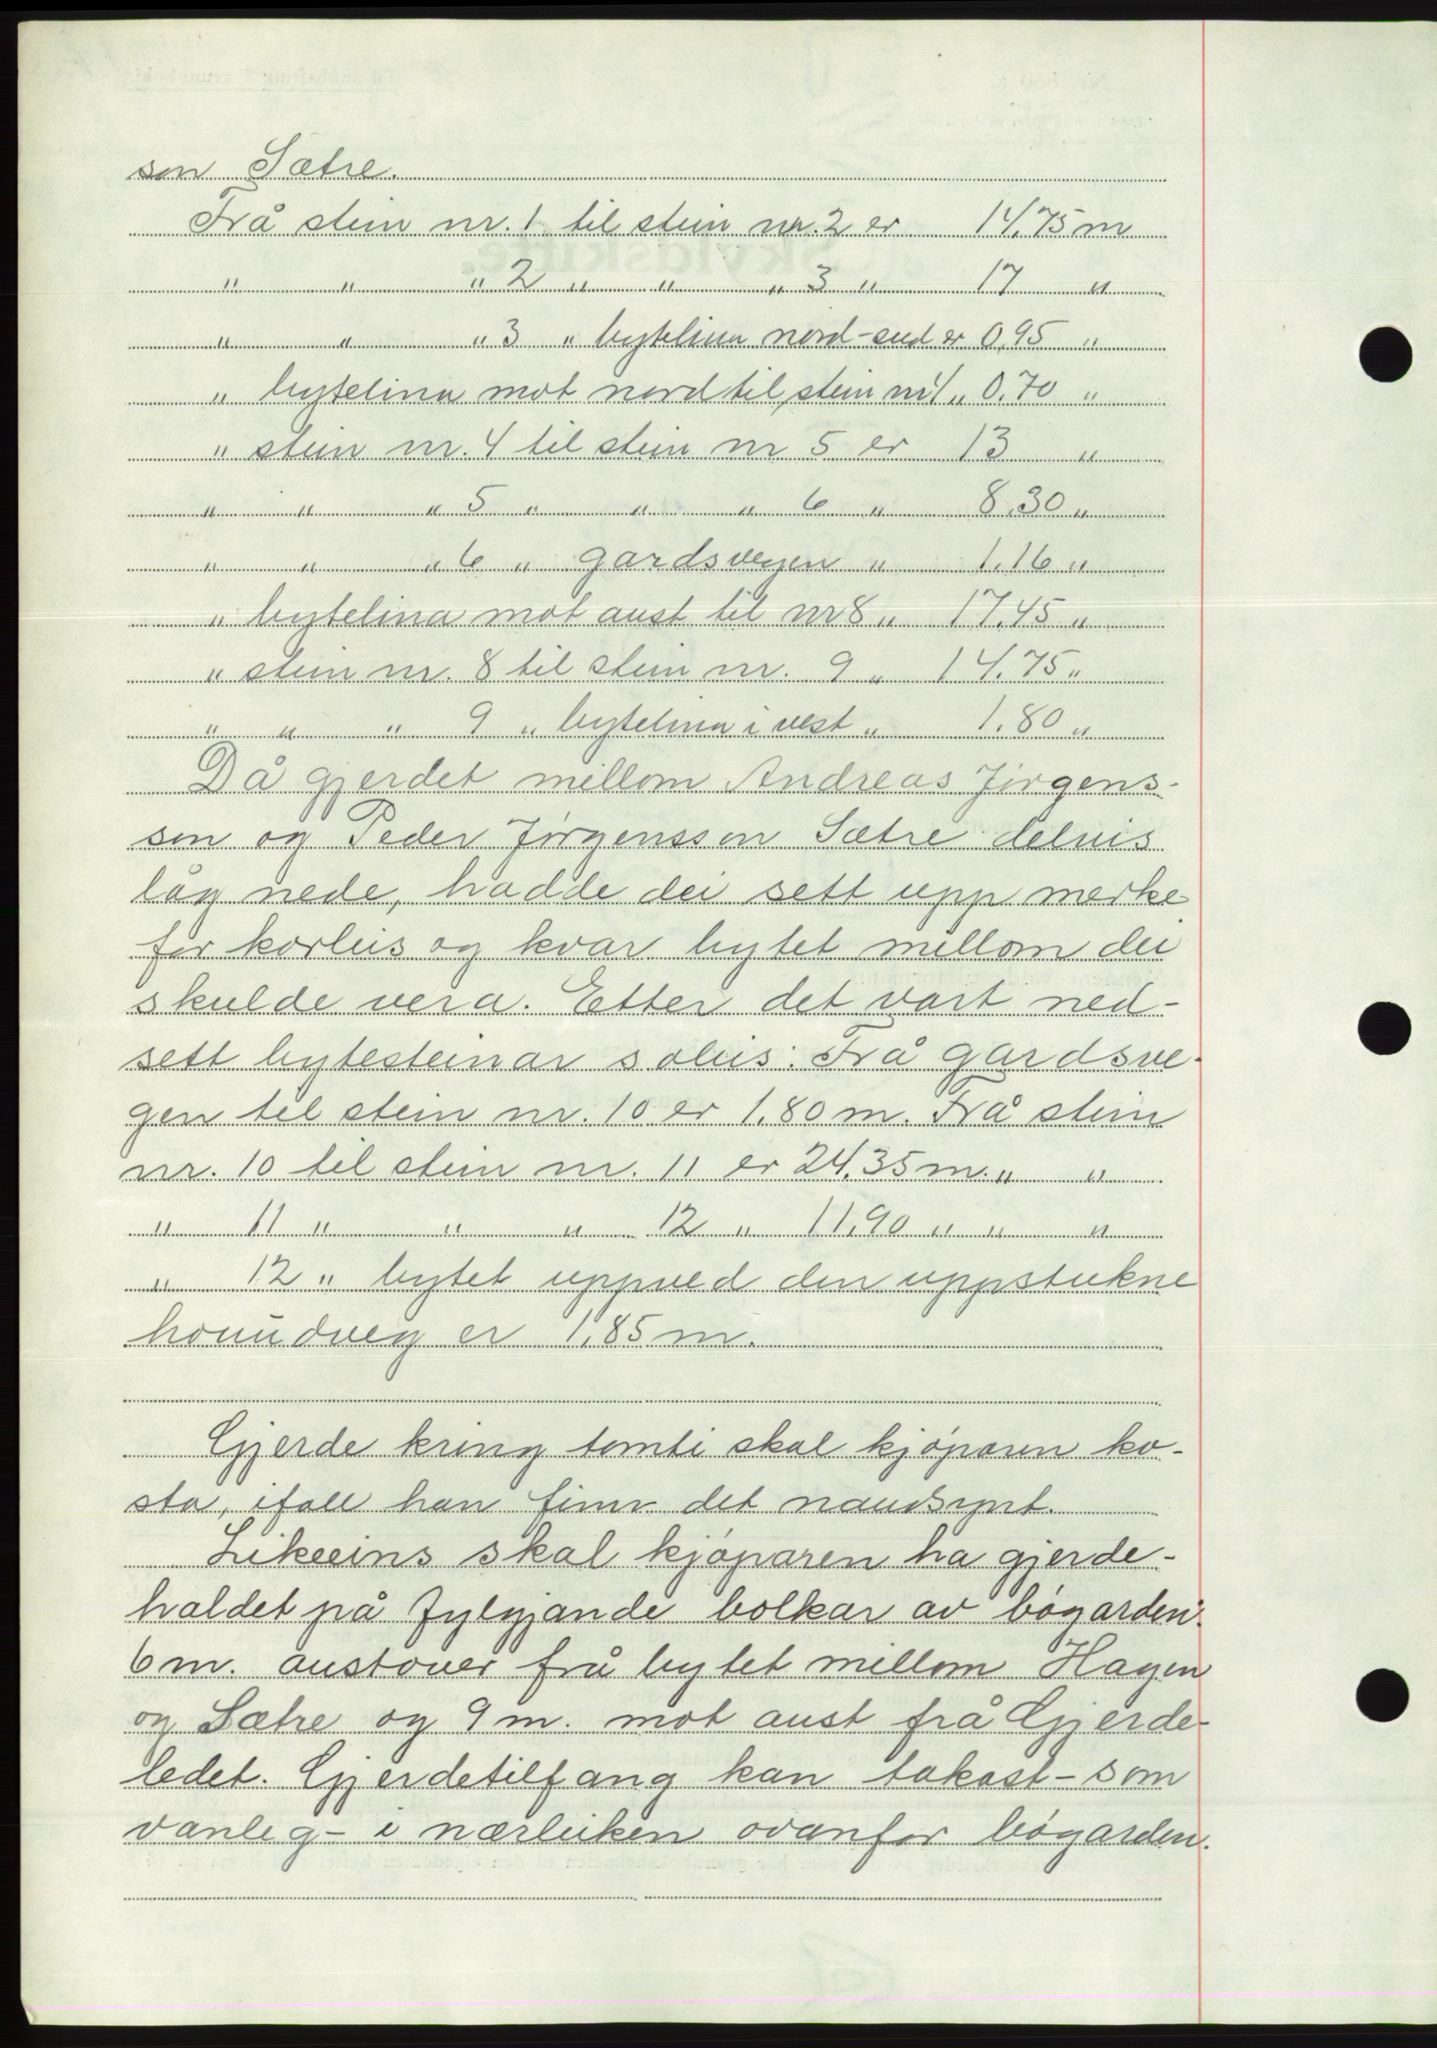 son Sætre.
Frå stein nr. 1 til stein nr. 2 er 14,75 m
" " " 2 " " " 3 " 17 "
" " " 3 " bytelina nord-sud er 0,95 "
" bytelina mot nord til stein nr 4 " 0,70 "
" stein nr. 4 til stein nr 5 er 13 "
" " " 5 " " " 6 " 8,30 "
" " " 6 " gardsvegen " 1,16 "
" bytelina mot aust til nr 8 " 17,45 "
" stein nr. 8 til stein nr. 9 " 14,75 "
" " " 9 " bytelina i vest " 1,80 "
Då gjerdet millom Andreas Jørgens-
son og Peder Jørgensson Sætre delvis
låg nede, hadde dei sett upp merke
for korleis og kvar bytet millom dei
skulde vera. Etter det vart ned-
sett bytesteinar soleis: Frå gardsve-
gen til stein nr. 10 er 1,80 m. Frå stein
nr. 10 til stein nr. 11 er 24,35 m. " "
" 11 " " " 12 " 11,90 " " "
" 12 " bytet uppved den uppstukne
hovudveg er 1,85 m.
Gjerde kring tomti skal kjøparen ko-
sta, ifall han finn det naudsynt.
Likeeins skal kjøparen ha gjerde-
haldet på fylgjande bolkar av bøgarden:
6 m. austover frå bytet millom Hagen
og Sætre og 9 m. mot aust frå Gjerde-
ledet. Gjerdetilfang kan takast - som
vanleg - i nærleiken ovanfor bøgarden.